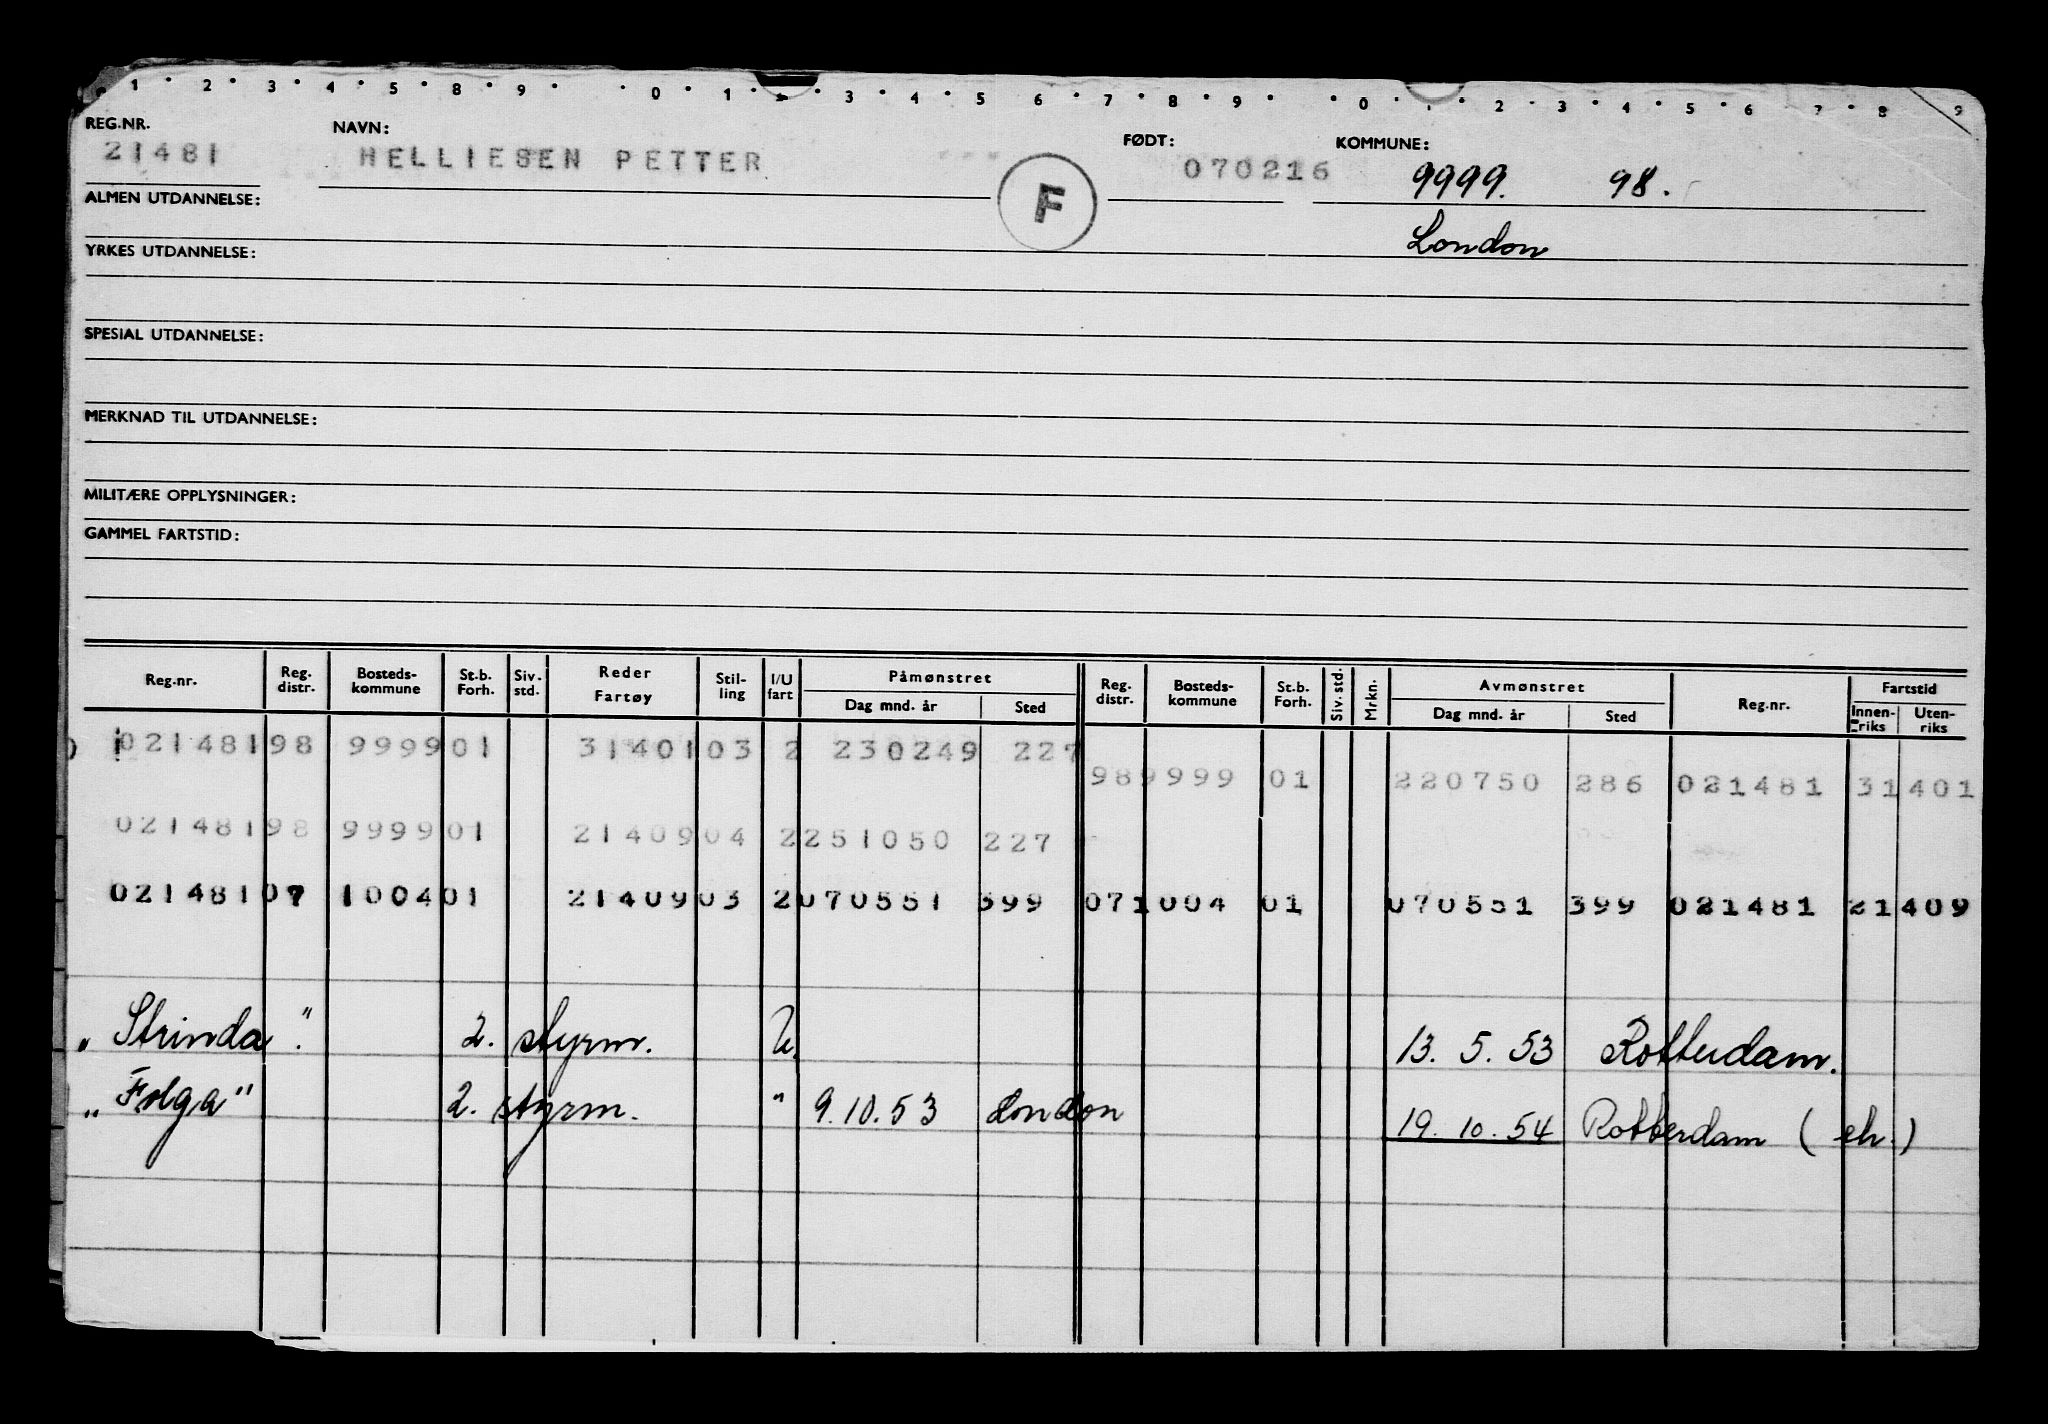 1 2 3 4 5 8 9 0 1 2 3 4 5 6 7 8 9 0 2 3 4 5 6 7 8 9
REG.NR. NAVN: FØDT: KOMMUNE:
21481 HELLIESEN PETTER F 070216 9999. 98.
ALMEN UTDANNELSE:
London
YRKES UTDANNELSE:
SPESIAL UTDANNELSE:
MERKNAD TIL UTDANNELSE:
MILITÆRE OPPLYSNINGER:
GAMMEL FARTSTID:
Reg.nr. Reg. distr. Bosteds-kommune St.b. Forh. Siv. std. Reder Fartøy Stil-ling I/U fart Påmønstret Dag mnd. år Sted Reg. distr. Bosteds-kommune St.b. Forh. Siv. std. Mrkn. Avmønstret Dag mnd. år Sted Reg.nr. Fartstid Innen-riks Uten-riks
02148198 999901 3140103 2 230249 227
989999 01 220750 286 021481 31401
02148198 999901 2140904 2251050 227
02148107 100401 2140903 2070551 399 071004 01 070551 399 021481 21409
"Strinda". 2. styrm. U. 13. 5. 53 Rotterdam.
"Folga" 2. styrm. " 9.10.53 London 19. 10. 54 Rotterdam